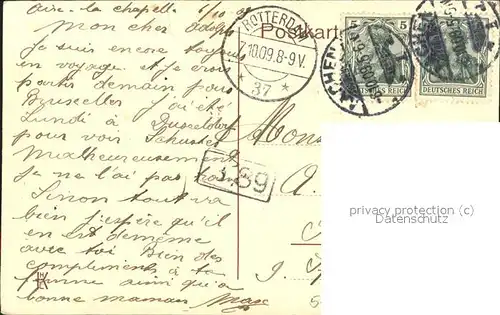 Aix la chapelle 6/10 09
Mon cher Adolf
Je suis encore toujours
en voyage et je crois
partir demain pour
Bruxelles j'ai été
Lundi à Dusseldorf
pour voir Schuster
Malheureusement
je ne l'ai pas
Sinon tout va
bien j'espère qu'il
en est de même
avec toi Bien des
compliments à ta
femme ainsi qu'à
bonne maman Max
Postkarte
ROTTERDAM
7.10.09.8-9V.
* 37 *
AACHEN
5 5
DEUTSCHES REICH
5
DEUTSCHES REICH
Mons
A.
privacy protection (c)
Datenschutz